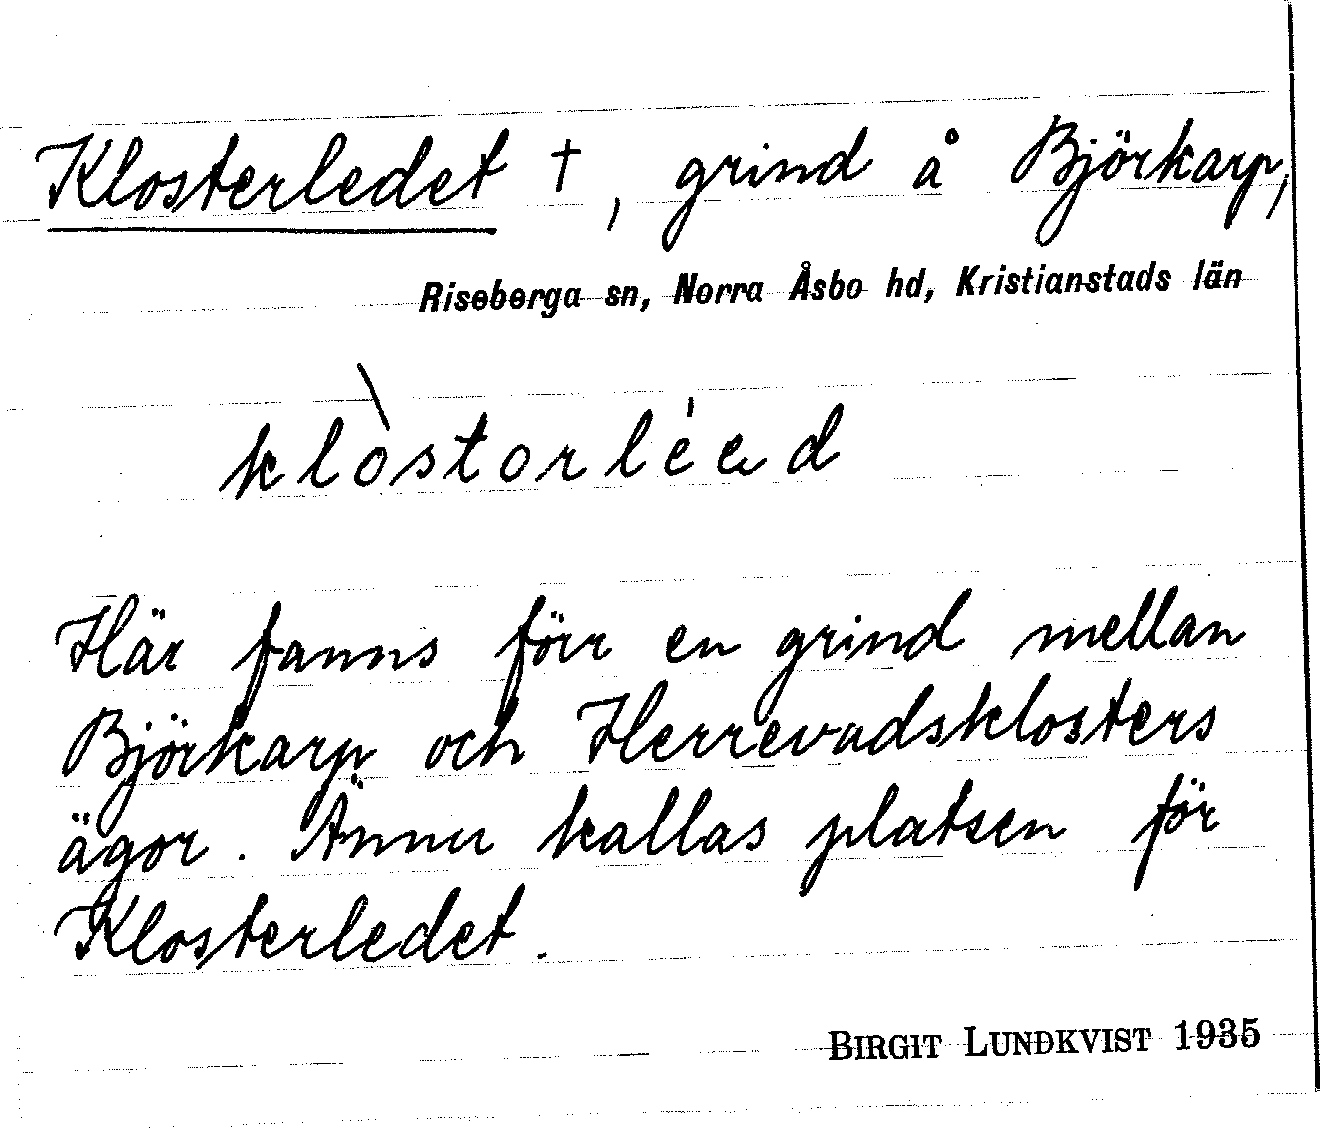 Klosterledet †, grind å Björkarp,
Riseberga sn, Norra Åsbo hd, Kristianstads län
klòstorléed
Här fanns förr en grind mellan
Björkarp och Herrevadsklosters
ägor. Ännu kallas platsen för
Klosterledet.
BIRGIT LUNDKVIST 1935